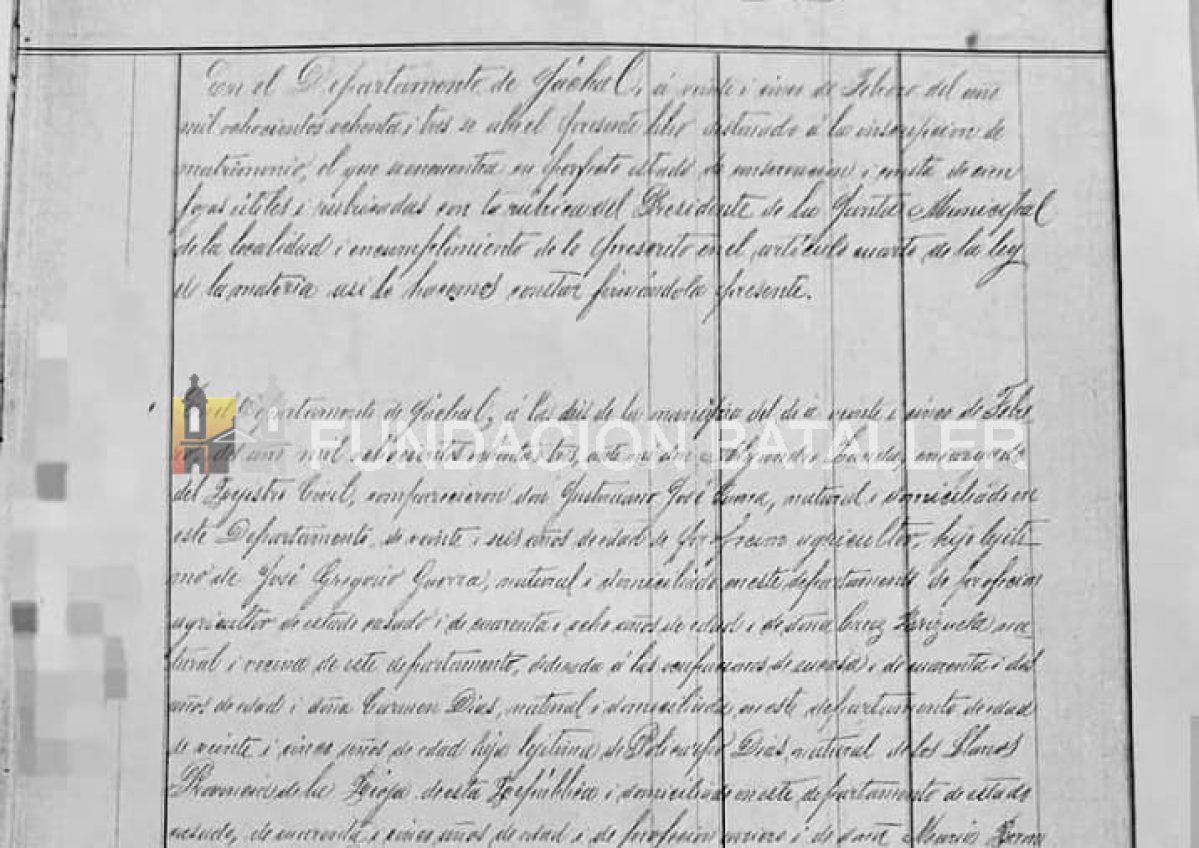 En el Departamento de Jáchal, á veinte i cinco de Febrero del año
mil ochocientos ochenta i tres se abre el presente libro destinado á la inscripcion de
matrimonios, el que se encuentra en perfecto estado de conservacion i consta de cien
fojas útiles i rubricadas con la rúbrica del Presidente de la Junta Municipal
de la localidad i en cumplimiento de lo prescrito en el artículo cuarto de la ley
de la materia asi lo hacemos constar firmándola presente.
el Departamento de Jáchal, á las diez de la mañana del dia veinte i cinco de Febre
FUNDACION BATALLER
ro, del año mil ochocientos ochenta i tres, ante mi don Alejandro encargado
del Registro Civil, comparecieron don Justiniano José Guerra, natural i domiciliado en
este Departamento, de veinte i seis años de edad de profesion agricultor, hijo lejiti-
mo de José Gregorio Guerra, natural i domiciliado en este departamento de profesion
agricultor de estado casado i de cuarenta i ocho años de edad i de doña Cruz na
tural i vecina de este departamento, dedicada á las de su casa i de cuarenta i dos
años de edad i doña Carmen Dias, natural i domiciliada en este departamento de edad
de veinte i cinco años de edad hija lejitima de Policarpo Dias, natural de los Llanos
Provincia de la Rioja de esta República i domiciliado en este departamento de estado
casado, de cuarenta i cinco años de edad i de profesion arriero i de doña Maria